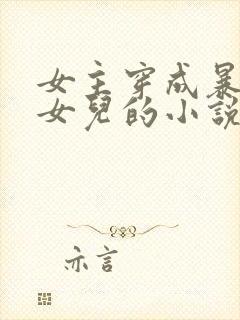 女主穿成暴
女兒的小說
亦言